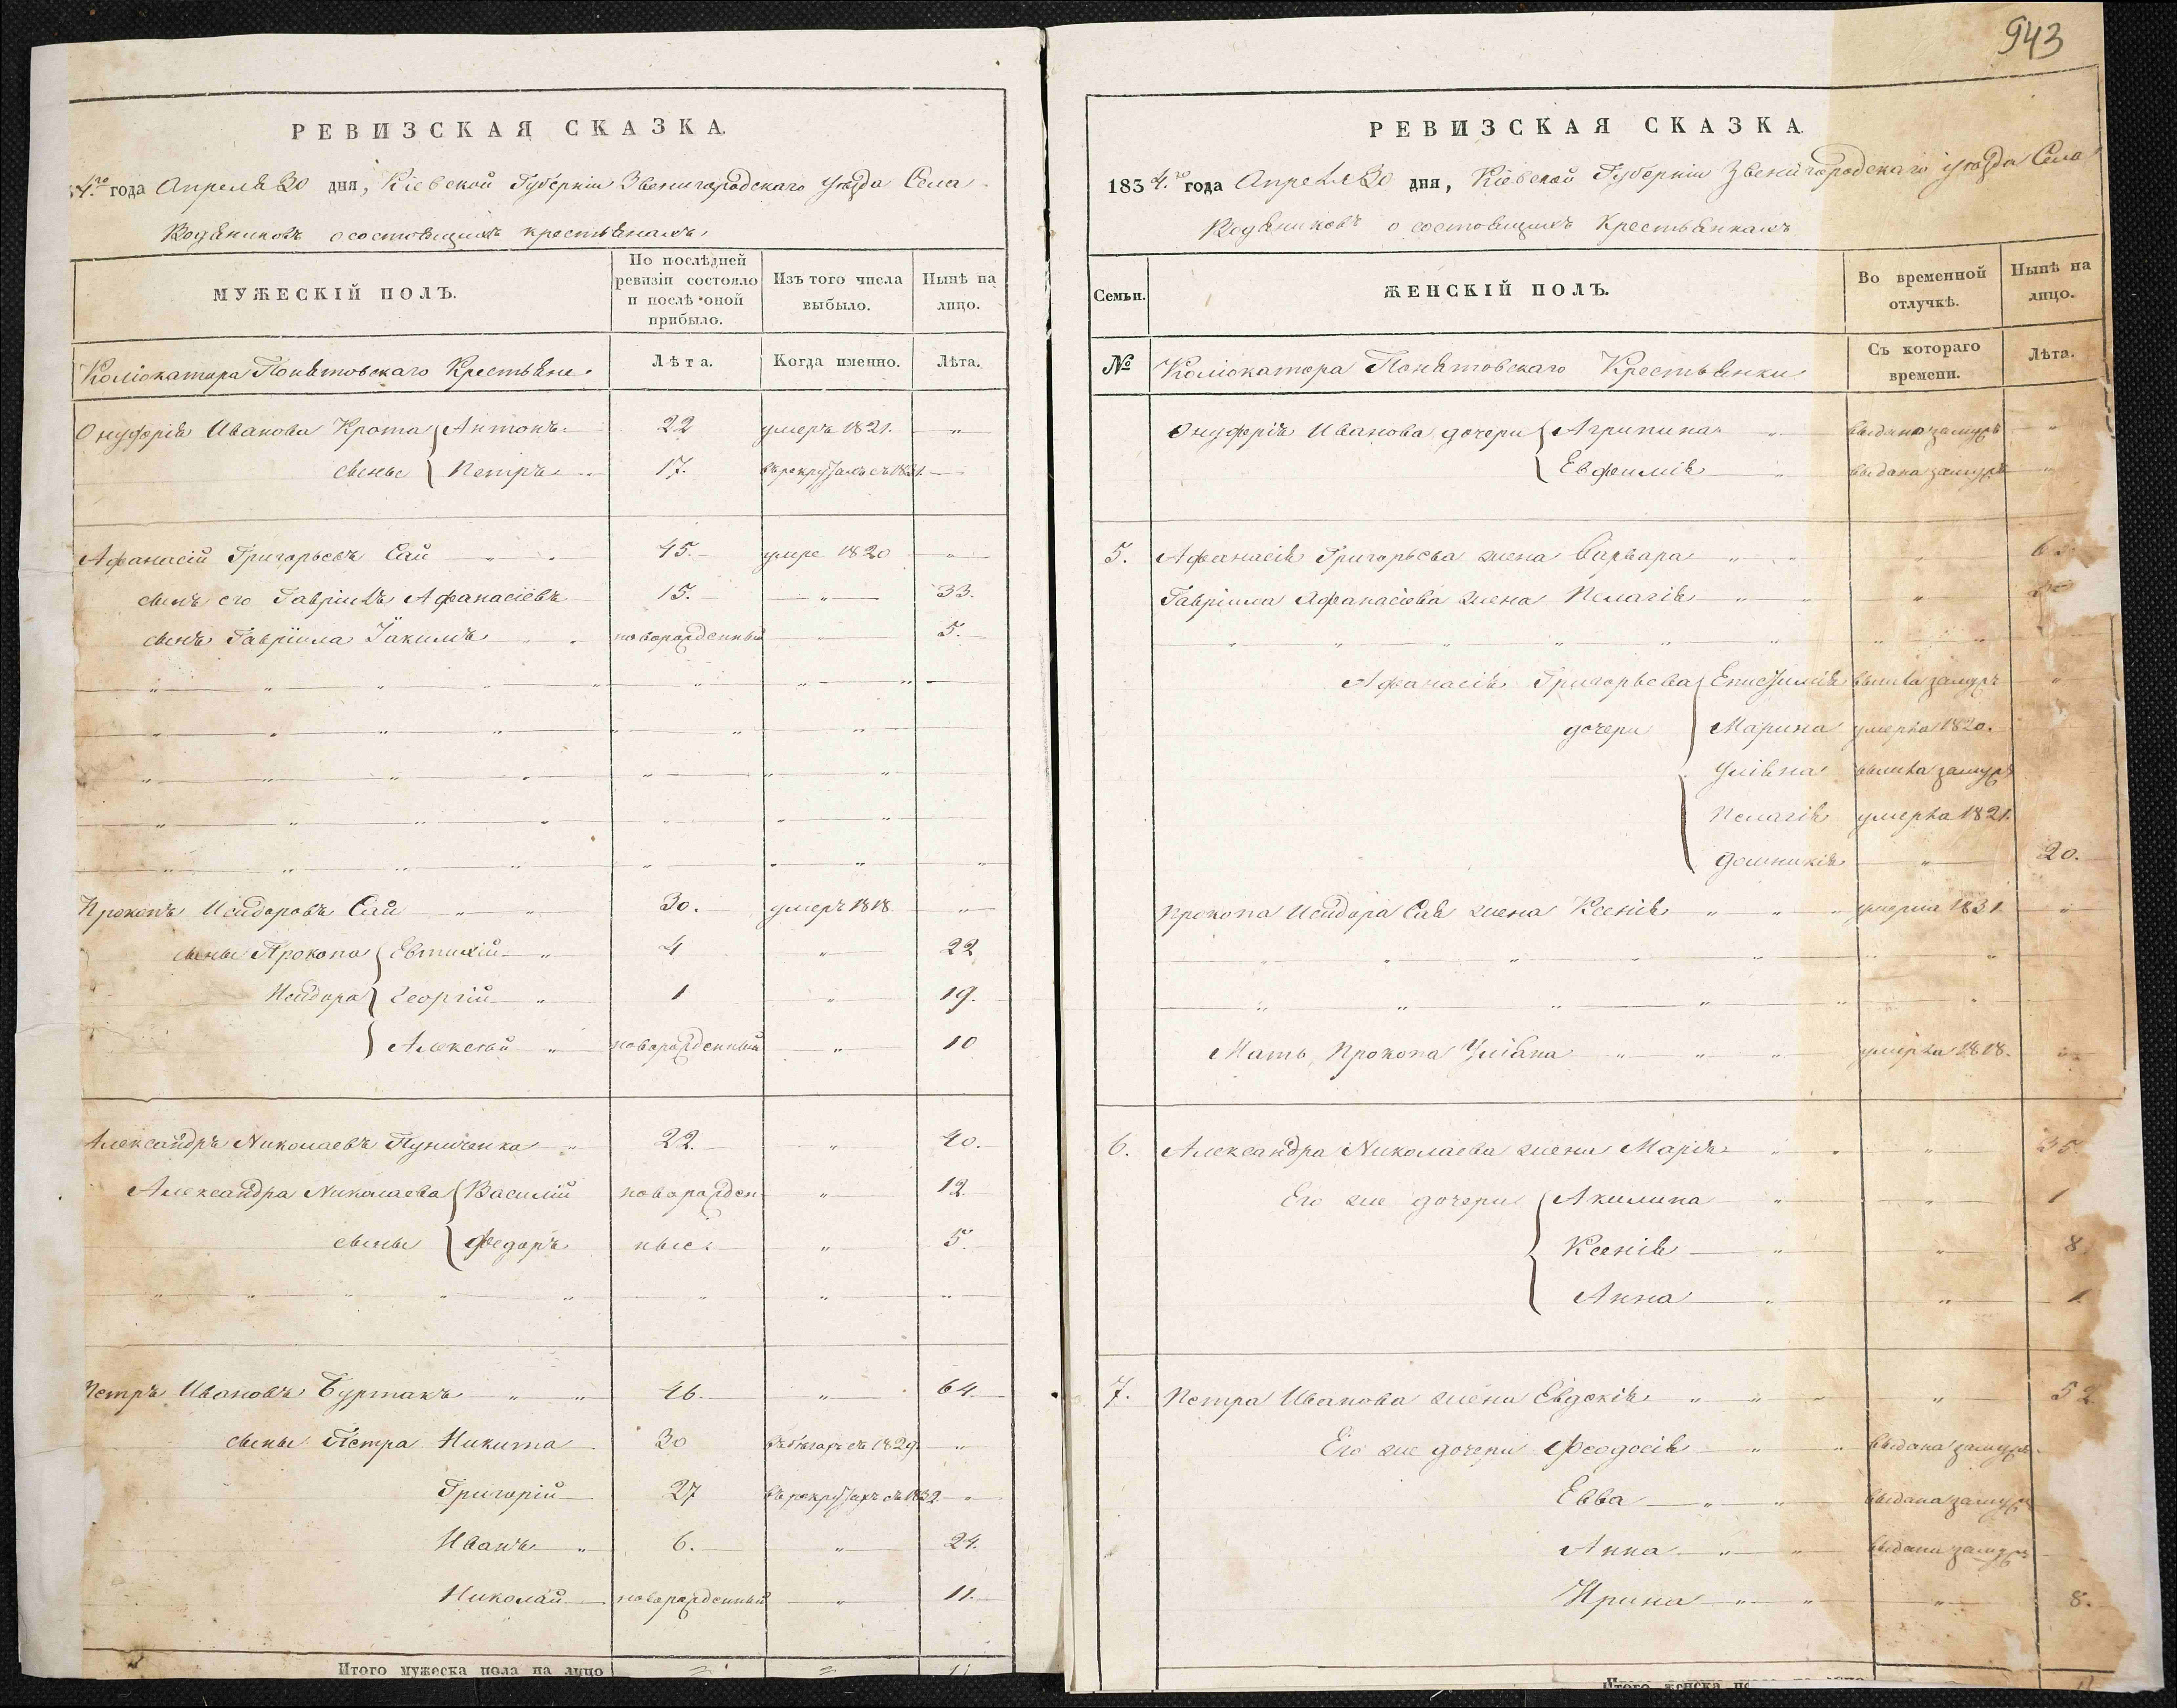 943
РЕВИЗСКАЯ СКАЗКА.
4.го года Апреля 30 дня, Кіевской Губерніи Звенигородскаго уѣзда Села
Водяниковъ о состоящихъ крестьянахъ
МУЖЕСКІЙ ПОЛЪ.
По послѣдней ревизіи состояло и послѣ оной прибыло.
Изъ того числа выбыло.
Нынѣ на лицо.
Коліокатора Понятовскаго Крестьяне
Лѣта.
Когда именно.
Лѣта.
Онуфрія Иванова Крота Антонъ 22 умеръ 1821. "
сыны Петръ 17. въ рекрутахъ съ 1831.
Афанасій Григорьевъ Сай 45. умре 1820 "
сынъ его Гавріилъ Афанасіевъ 15. " 33.
сынъ Гавріила Іакимъ новорожденный " 5.
Прокопъ Исидоровъ Сай 30. умеръ 1818 "
сыны Прокопа Евтихій 4 " 22
Исидора Георгій 1 " 19.
Алексѣй новорожденный " 10
Александръ Николаевъ Пуниченко 22. " 40.
Александра Николаева Василій новорожден " 12
сыны Федоръ ные " 5.
Петръ Ивановъ Буртакъ 46. " 64
сыны Петра Никита 30 въ бѣгахъ съ 1829 "
Григорій 27 въ рекрутахъ съ 1832 "
Иванъ 6. " 24.
Николай новорожденный " 11.
Итого мужеска пола на лицо 11
РЕВИЗСКАЯ СКАЗКА.
1834.го года Апреля 30 дня, Кіевской Губерніи Звенигородскаго уѣзда Села
Водяниковъ о состоящихъ Крестьянкахъ
Семьи.
ЖЕНСКІЙ ПОЛЪ.
Во временной отлучкѣ.
Нынѣ на лицо.
№
Коліокатора Понятовскаго Крестьянки
Съ котораго времени.
Лѣта.
Онуфрія Иванова дочери Агрипина выдана замужъ "
Евфимія выдана замужъ "
5. Афанасія Григорьева жена Варвара "
Гавріила Афанасіева жена Пелагія "
Афанасія Григорьева Епистимія вышла замужъ "
дочери Марина умерла 1820.
Уліяна вышла замужъ
Пелагія умерла 1821.
Домникія " 20.
Прокопа Исидора Сая жена Ксенія умерла 1831. "
Мать Прокопа Уліана умерла 1818.
6. Александра Николаева жена Марія " 35
Его же дочери Акилина " 1
Ксенія " 8
Анна " 1
7. Петра Иванова жена Евдокія " 52
Его же дочери Феодосія выдана замужъ
Евва выдана замужъ
Анна выдана замужъ
Ирина " 8.
Итого женска